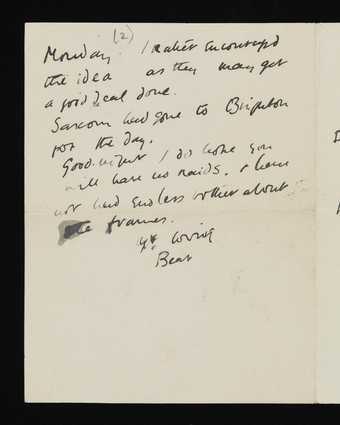 (2)
Monday. I rather encouraged
the idea as they may get
a good deal done.
Saxon had gone to Brighton
for the day.
Goodnight I do hope you
will have no raids. & have
not had endless bother about
the frames.
yr loving
Bear